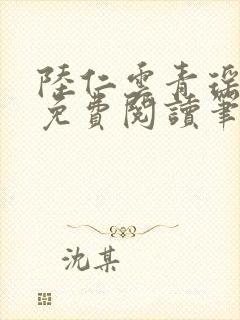 陸仁雲青瑤
免費閱讀筆
沈某